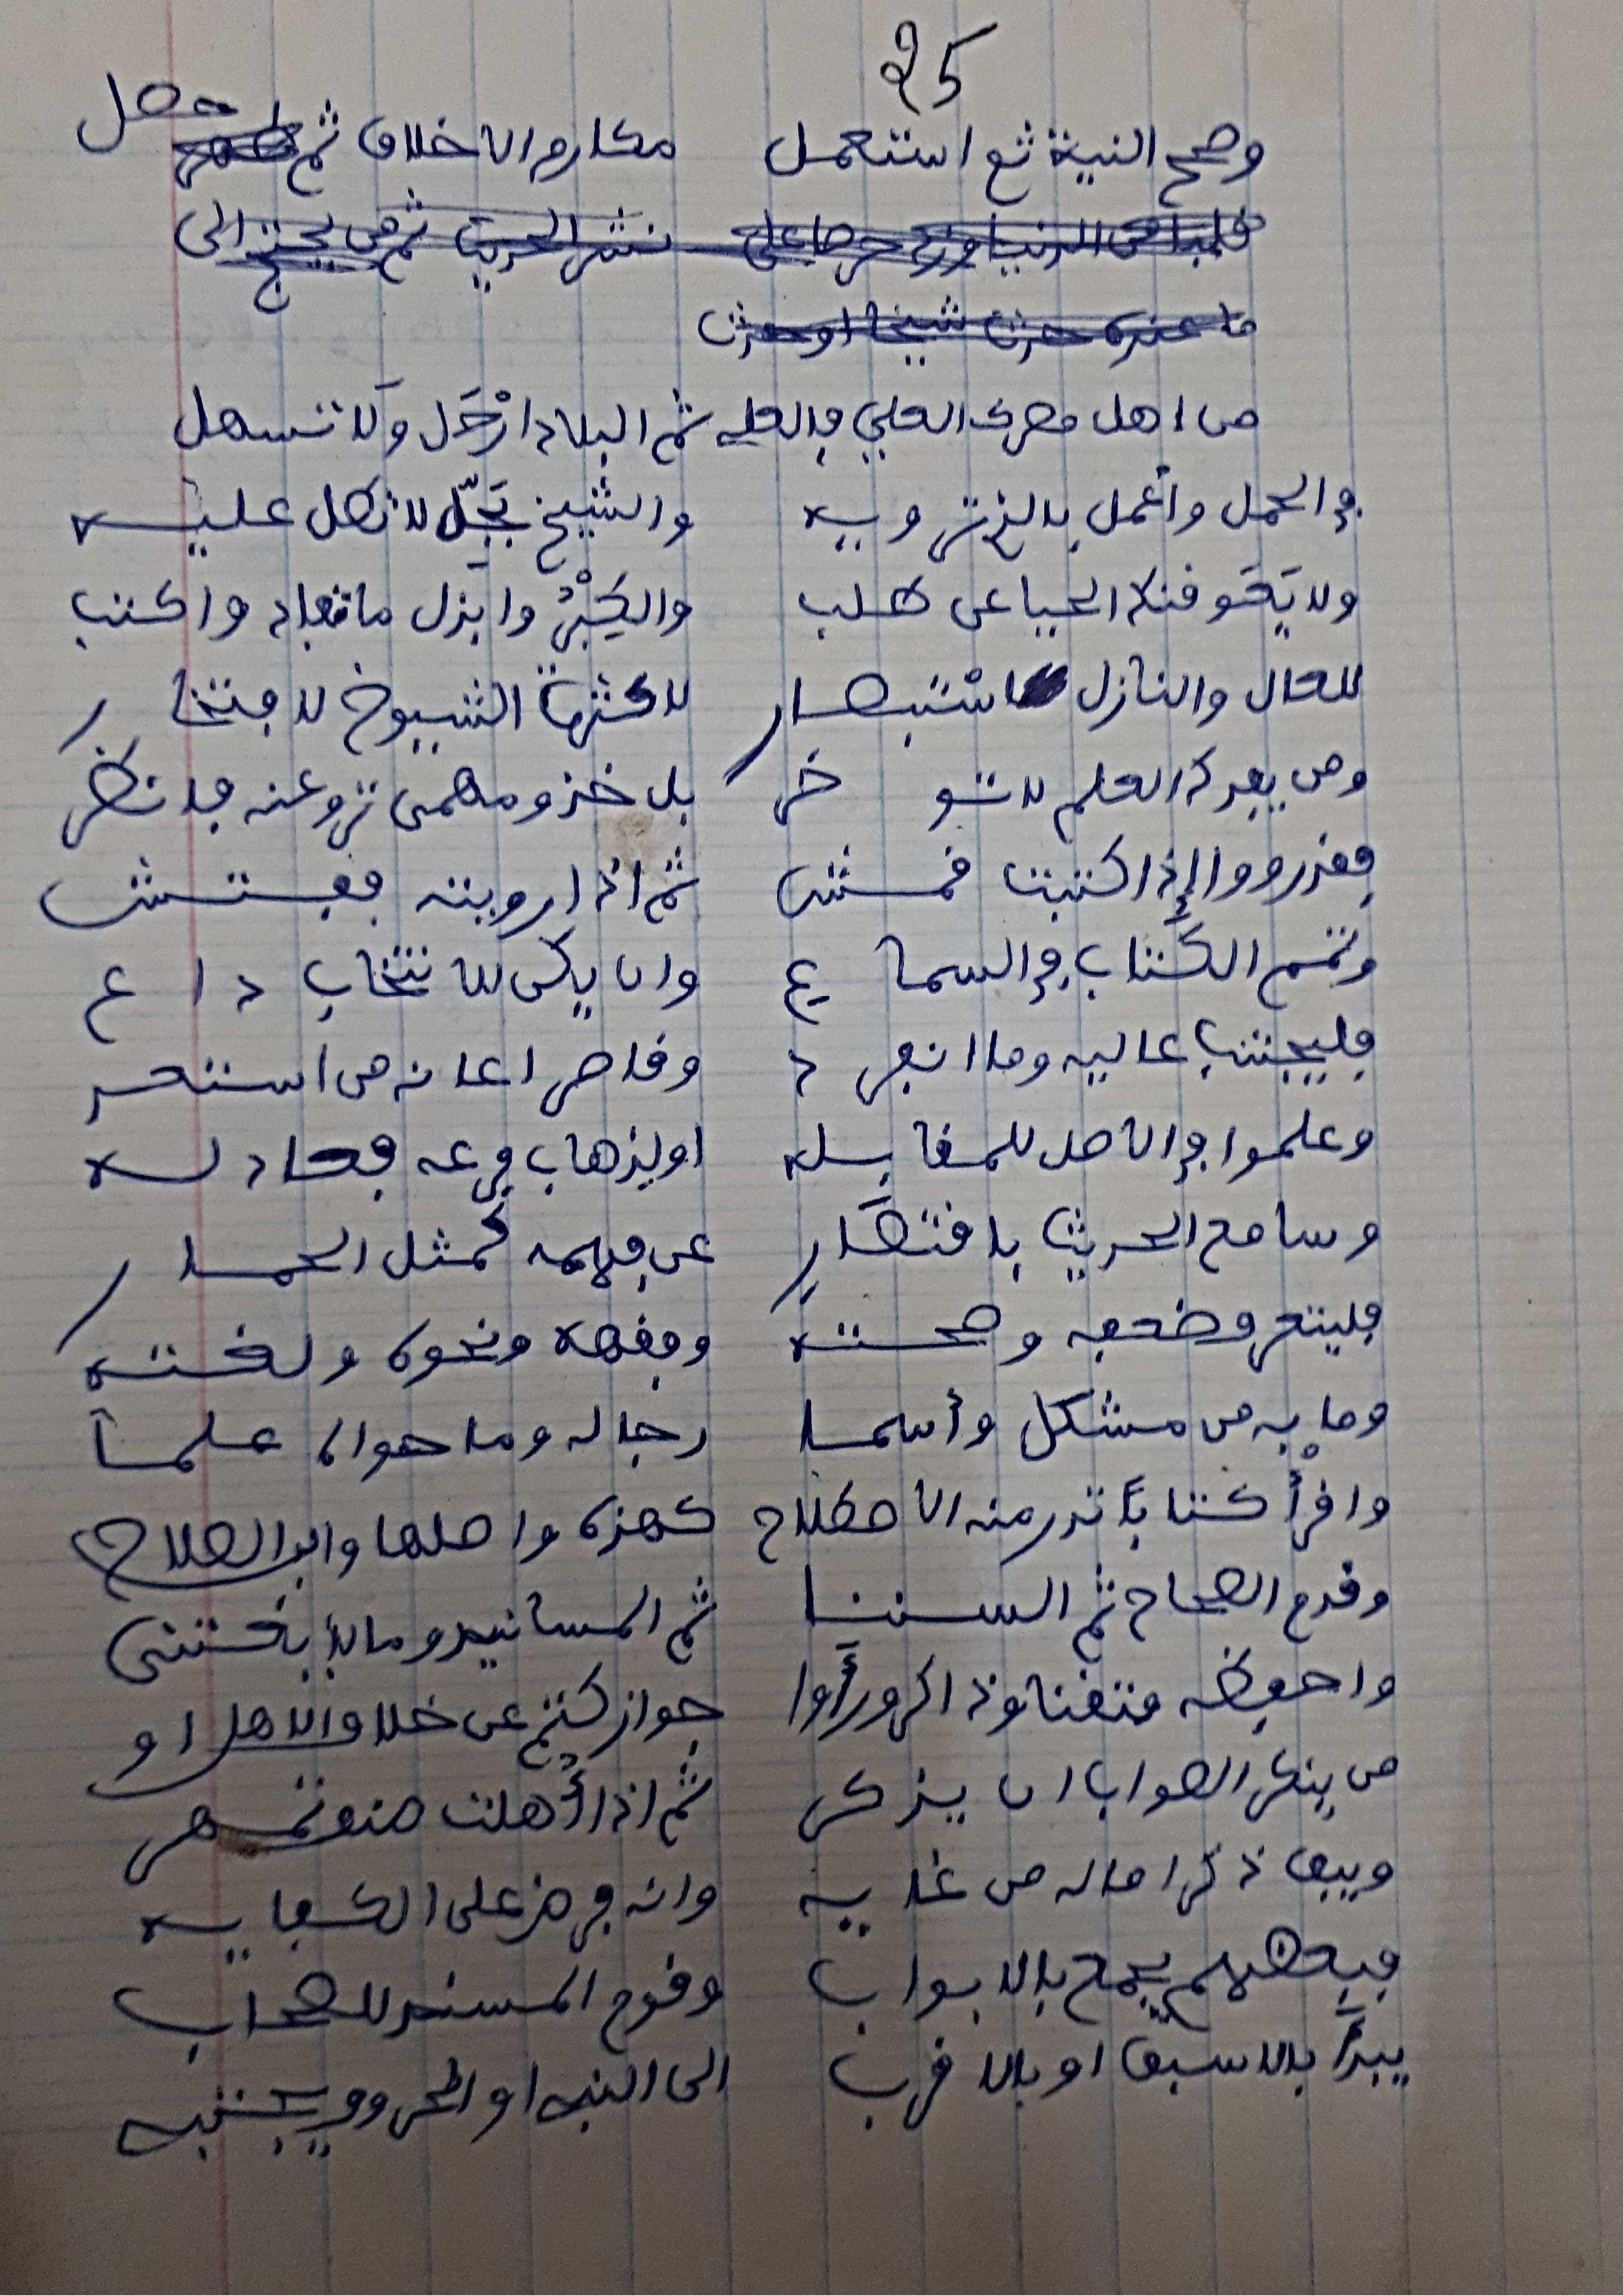 25
وصحح النية ثم استعمل مكارم الاخلاق ثم حصل
قلبا من الدنيا وزد حرصا على نشر الحديث ثم من يحتج الى
ما عنده حدث شيخا او حدث
من اهل مصرك العلي فالعلي ثم البلاد ارْحَل وَلا تسهل
في الحمل وأعمل بالذي ترويه والشيخ بَجِّل لا تطل عليه
ولا يَعُوقنك الحيا عن طلب والكِبْرُ وابذل ما تفاد واكتب
للعال والنازل لاستبصار لا كثرة الشيوخ لافتخار
ومن يفدك العلم لا تؤخر بل خذ ومهمى ترو عنه فانظر
فقد رووا إذا كتبت قمش ثم اذا رويته ففتش
وتمم الكتاب في السماع وان يكن للانتخاب داع
فلينتخب عاليه وما انفرد وقاصر اعانه من استعد
وعلموا في الاصل للمقابله او لذهاب فرعه فعاد له
وسامع الحديث باقتصار عن فهمه كمثل الحمار
فليتعرف ضعفه وصحته وفقهه ونحوه ولغته
وما به من مشكل وأسما رجاله وما حواه علما
واقرأ كتابا تدر منه الاصطلاح كهذه واصلها وابن الصلاح
وقدم الصحاح ثم السننا ثم المسانيد وما لا يغتنى
واحفظه متقنا وذاكر ورأَوا جواز كتم عن خلاف الاهل او
من ينكر الصواب ان يذكر ثم اذا أُهلت صنف تمهر
ويبق ذكرا ماله من غايه وانه فرض على الكفايه
فبعضهم يجمع بالابواب وقوم المسند للصحاب
يبدأ بالاسبق او بالاقرب الى النبي او الحروف يجتبي